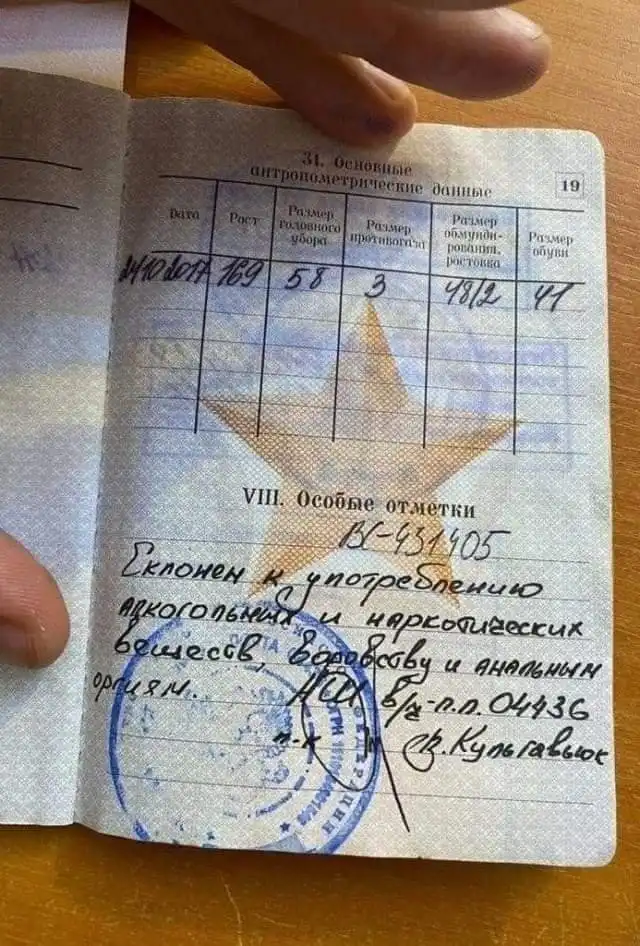 31. Основные
антропометрические данные
19
Дата Рост Размер головного убора Размер противогаза Размер обмундирования, ростовка Размер обуви
24.10.2017 169 58 3 48/2 41
VIII. Особые отметки
ВС-431405
Склонен к употреблению
алкогольных и наркотических
веществ, воровству и анальным
оргиям. НШ в/ч-п.п. 04436
п-к Р. Кульгавьюк